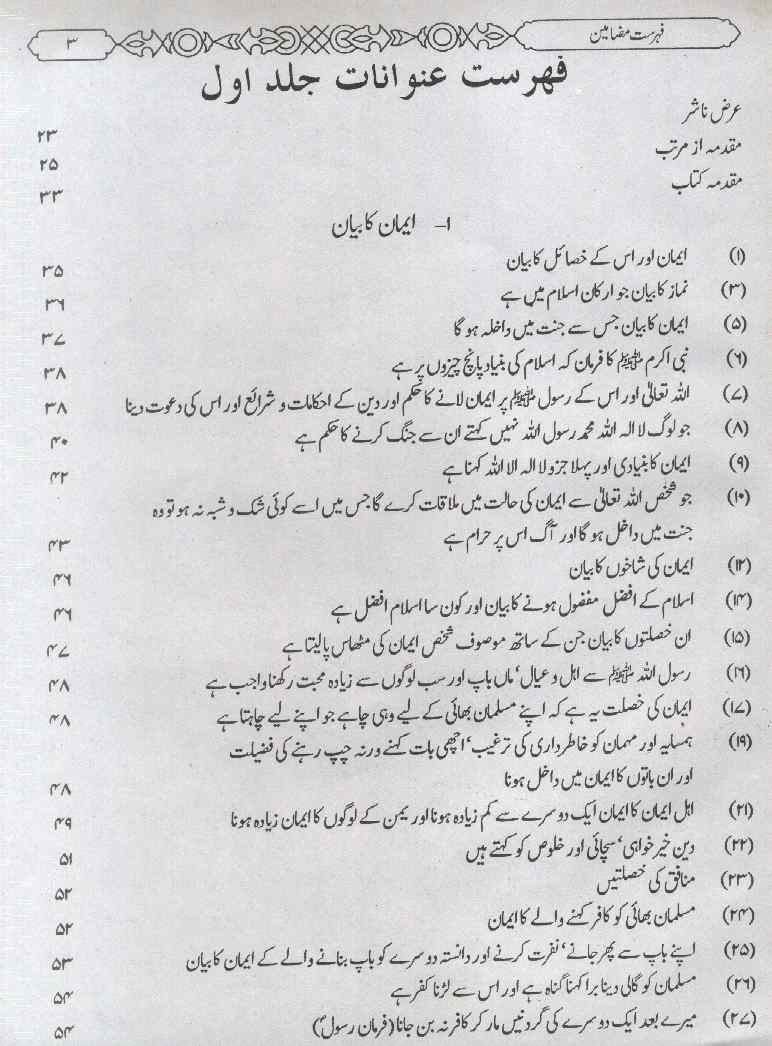 فہرست مضامین ۳
فہرست عنوانات جلد اول
عرض ناشر ۲۳
مقدمہ از مرتب ۲۵
مقدمہ کتاب ۳۳
۱- ایمان کا بیان
(۱) ایمان اور اس کے خصائل کا بیان ۳۵
(۳) نماز کا بیان جو ارکان اسلام میں ہے ۳۶
(۵) ایمان کا بیان جس سے جنت میں داخلہ ہو گا ۳۷
(۶) نبی اکرم ﷺ کا فرمان کہ اسلام کی بنیاد پانچ چیزوں پر ہے ۳۸
(۷) اللہ تعالیٰ اور اس کے رسول ﷺ پر ایمان لانے کا حکم اور دین کے احکامات و شرائع اور اس کی دعوت دینا ۳۸
(۸) جو لوگ لا الہ اللہ محمد رسول اللہ نہیں کہتے ان سے جنگ کرنے کا حکم ہے ۴۰
(۹) ایمان کا بنیادی اور پہلا جزو لا الہ الا اللہ کہنا ہے ۴۲
(۱۰) جو شخص اللہ تعالیٰ سے ایمان کی حالت میں ملاقات کرے گا جس میں اسے کوئی شک و شبہ نہ ہو تو وہ
جنت میں داخل ہو گا اور آگ اس پر حرام ہے ۴۳
(۱۲) ایمان کی شاخوں کا بیان ۴۶
(۱۴) اسلام کے افضل مفضول ہونے کا بیان اور کون سا اسلام افضل ہے ۴۶
(۱۵) ان خصلتوں کا بیان جن کے ساتھ موصوف شخص ایمان کی مٹھاس پا لیتا ہے ۴۷
(۱۶) رسول اللہ ﷺ سے اہل و عیال‘ ماں باپ اور سب لوگوں سے زیادہ محبت رکھنا واجب ہے ۴۸
(۱۷) ایمان کی خصلت یہ ہے کہ اپنے مسلمان بھائی کے لیے وہی چاہے جو اپنے لیے چاہتا ہے ۴۸
(۱۹) ہمسایہ اور مہمان کو خاطرداری کی ترغیب‘ اچھی بات کہنے ورنہ چپ رہنے کی فضیلت
اور ان باتوں کا ایمان میں داخل ہونا ۴۸
(۲۱) اہل ایمان کا ایمان ایک دوسرے سے کم زیادہ ہونا اور یمن کے لوگوں کا ایمان زیادہ ہونا ۴۹
(۲۲) دین خیر خواہی‘ سچائی اور خلوص کو کہتے ہیں ۵۱
(۲۳) منافق کی خصلتیں ۵۲
(۲۴) مسلمان بھائی کو کافر کہنے والے کا ایمان ۵۲
(۲۵) اپنے باپ سے پھر جانے‘ نفرت کرنے اور دانستہ دوسرے کو باپ بنانے والے کے ایمان کا بیان ۵۳
(۲۶) مسلمان کو گالی دینا برا کہنا گناہ ہے اور اس سے لڑنا کفر ہے ۵۴
(۲۷) میرے بعد ایک دوسرے کی گردنیں مار کر کافر نہ بن جانا (فرمان رسولؐ) ۵۴